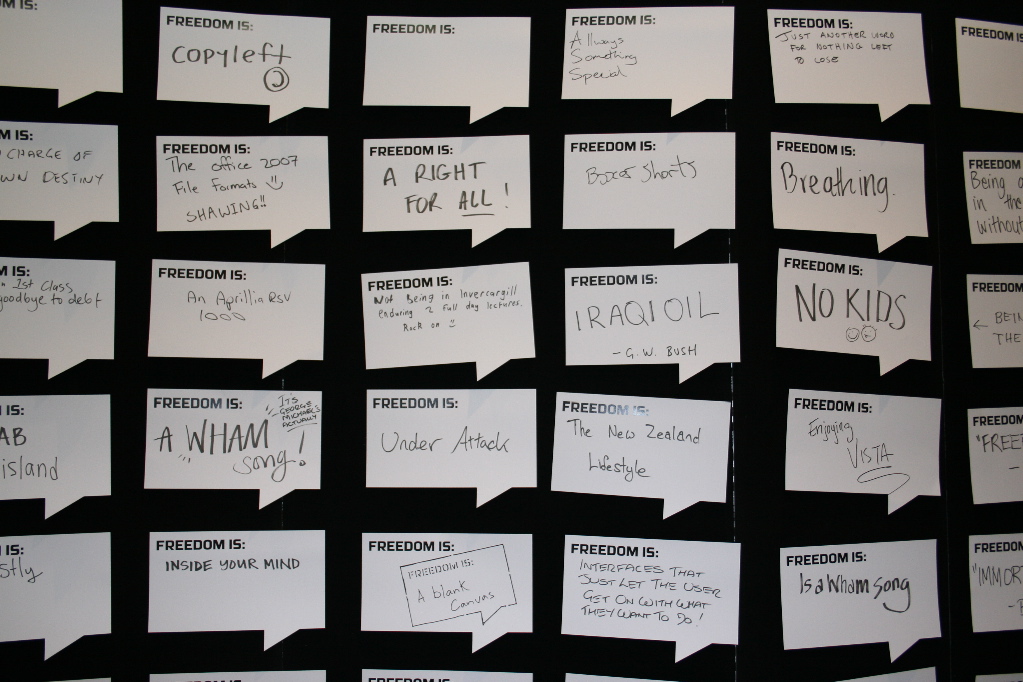 IS:
FREEDOM IS:
Copyleft
FREEDOM IS:
FREEDOM IS:
Allways
Something
Special
FREEDOM IS:
JUST ANOTHER WORD
FOR NOTHING LEFT
TO LOSE
FREEDOM IS
M IS:
CHARGE OF
WN DESTINY
FREEDOM IS:
The office 2007
File Formats
SHAWING!!
FREEDOM IS:
A RIGHT
FOR ALL!
FREEDOM IS:
Boxer Shorts
FREEDOM IS:
Breathing.
FREEDOM
Being
in the
without
IS:
1st Class
goodbye to debt
FREEDOM IS:
An Aprillia RSV
1000
FREEDOM IS:
Not Being in Invercargill
enduring 2 full day lectures.
Rock on
FREEDOM IS:
IRAQI OIL
- G.W. BUSH
FREEDOM IS:
NO KIDS
FREEDOM
← BEIN
THE
IS:
AB
island
FREEDOM IS:
A WHAM
song!
ITS
GEORGE
MICHAELS
ACTUALLY
FREEDOM IS:
Under Attack
FREEDOM IS:
The New Zealand
Lifestyle
FREEDOM IS:
Enjoying
VISTA
FREEDOM
"FREE
IS:
stly
FREEDOM IS:
INSIDE YOUR MIND
FREEDOM IS:
FREEDOM IS:
A blank
Canvas
FREEDOM IS:
INTERFACES THAT
JUST LET THE USER
GET ON WITH WHAT
THEY WANT TO DO!
FREEDOM IS:
Is a Wham Song
FREEDOM
"IMMORT